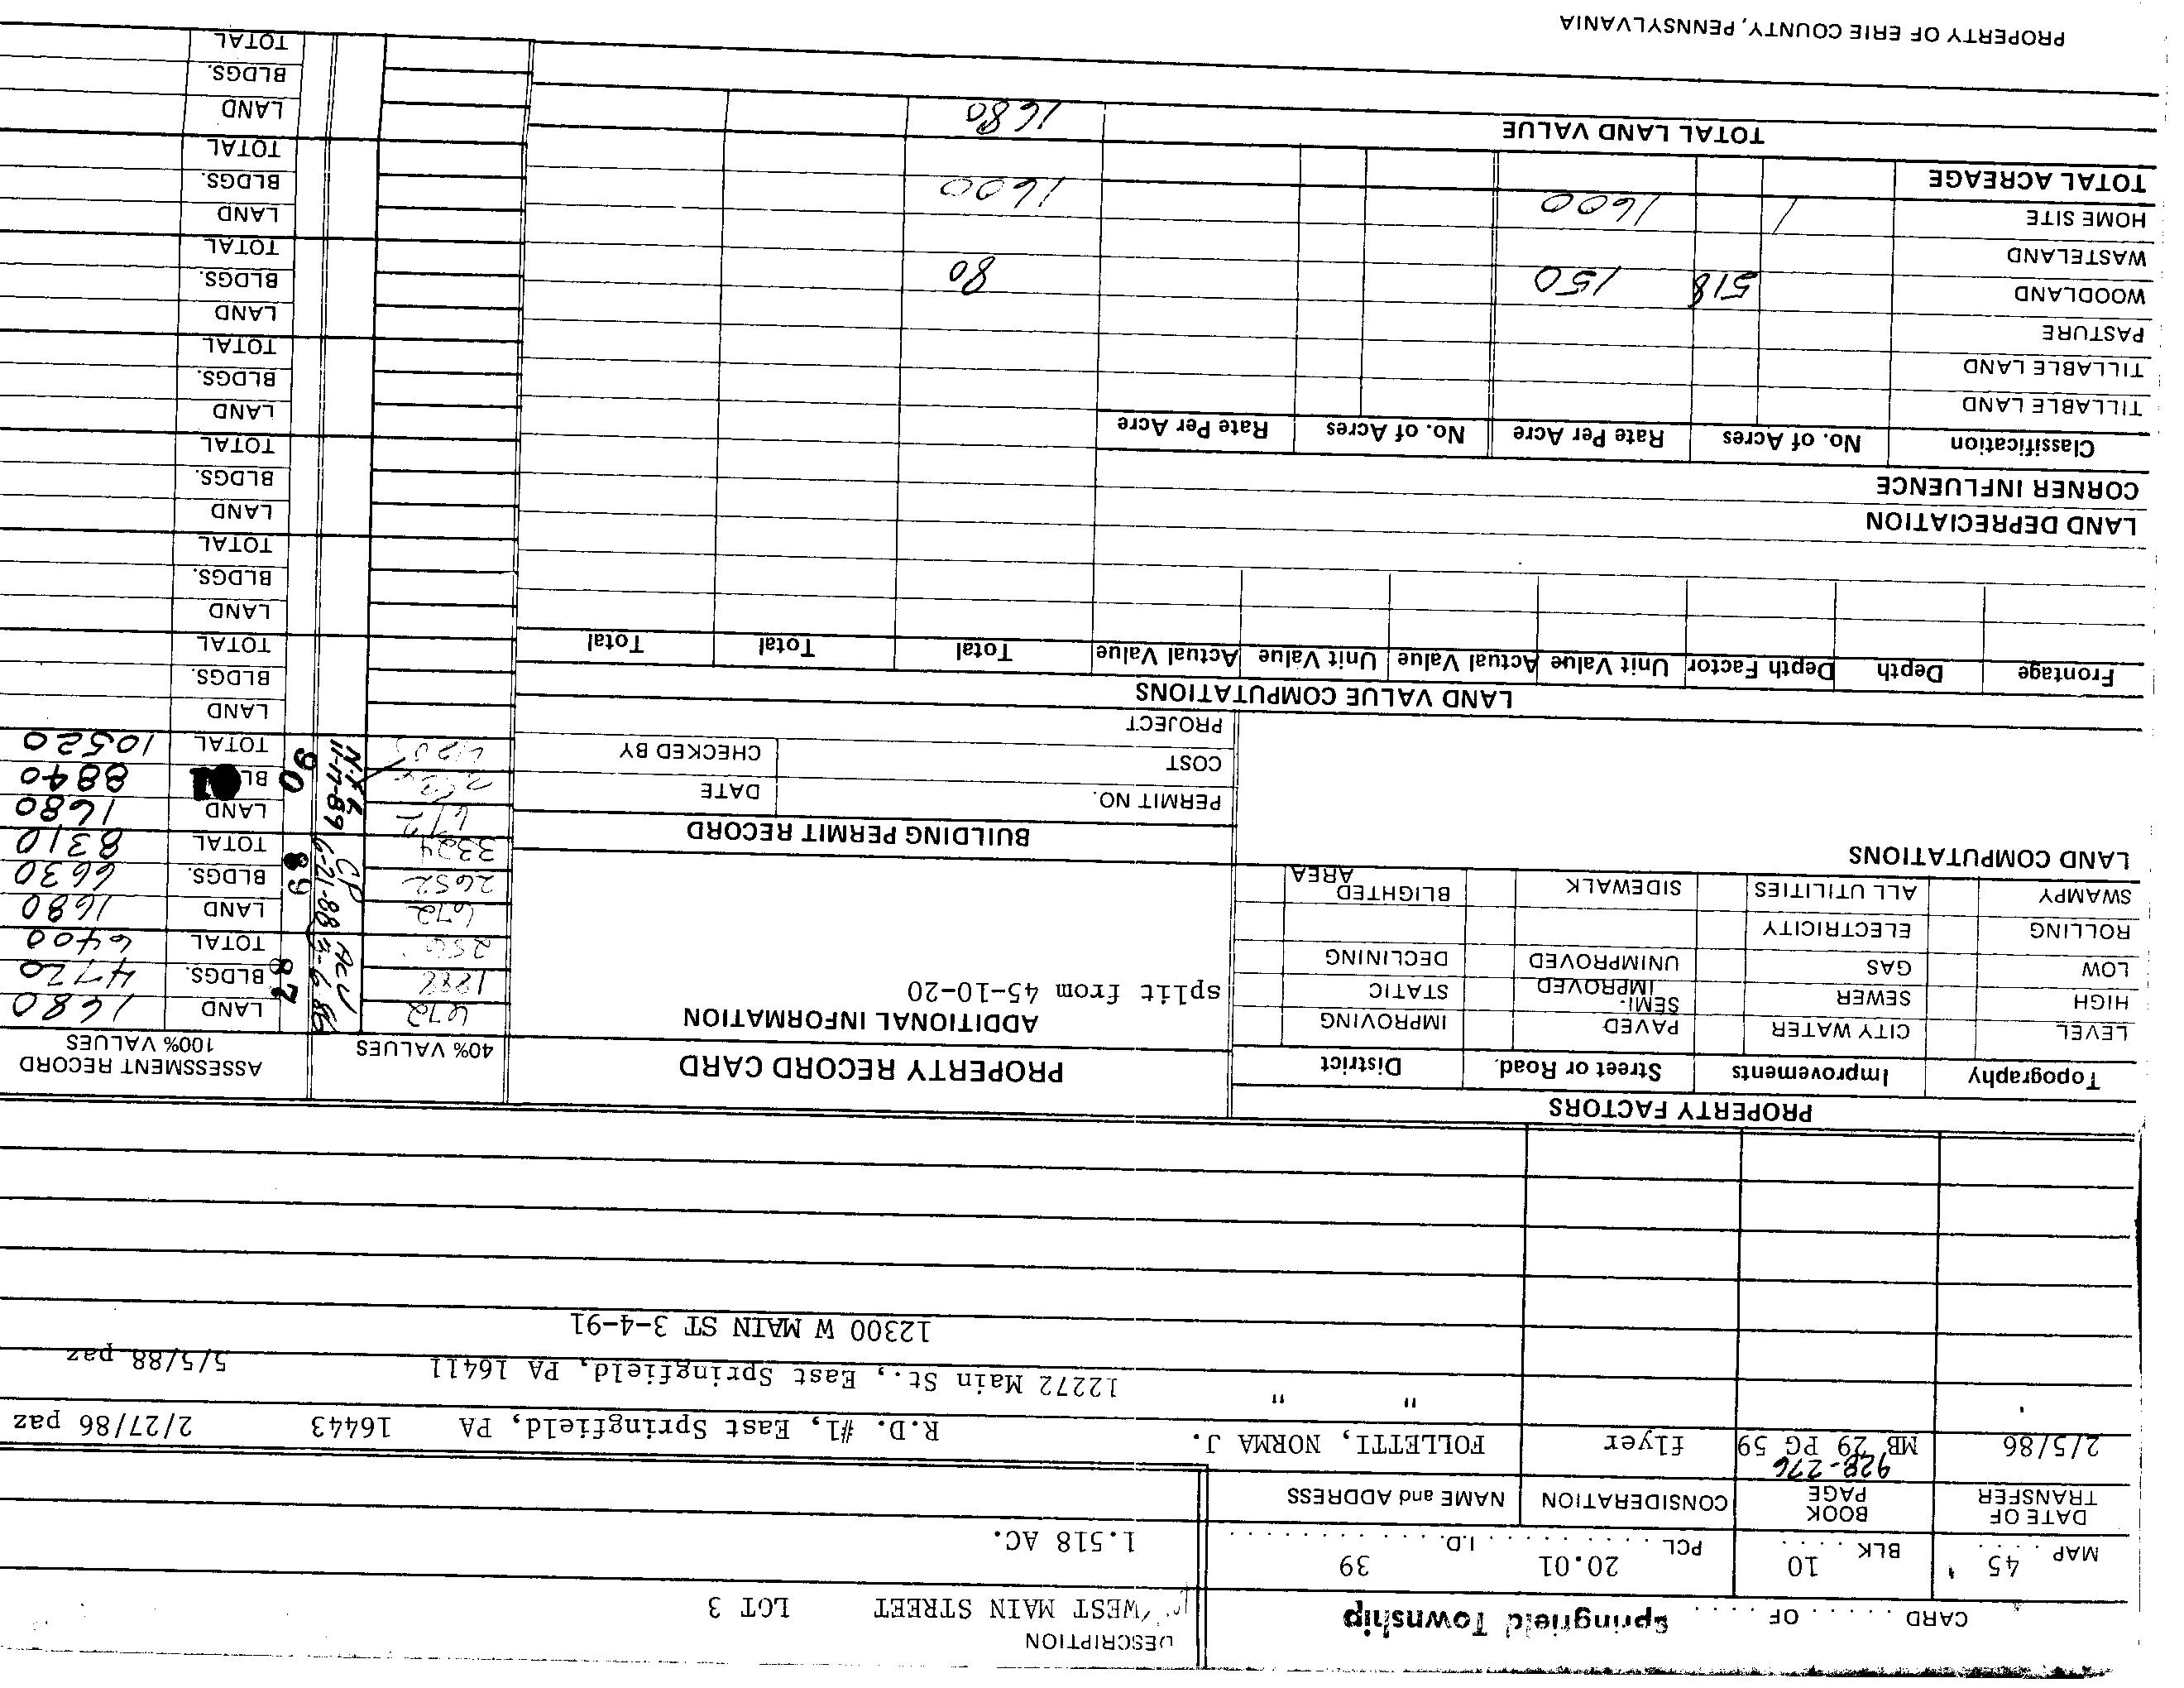 CARD ...... OF ..... Springfield Township
DESCRIPTION
WEST MAIN STREET LOT 3
MAP 45 BLK 10 PCL 20.01 I.D. 39
1.518 AC.
DATE OF TRANSFER BOOK PAGE CONSIDERATION NAME and ADDRESS
928-276
2/5/86 MB 29 PG 59 flyer FOLLETTI, NORMA J. R.D. #1, East Springfield, PA 16443 2/27/86 paz
" " 12272 Main St., East Springfield, PA 16411 5/5/88 paz
12300 W MAIN ST 3-4-91
PROPERTY FACTORS
Topography Improvements Street or Road. District
LEVEL CITY WATER PAVED IMPROVING
HIGH SEWER SEMI-IMPROVED STATIC
LOW GAS UNIMPROVED DECLINING
ROLLING ELECTRICITY
SWAMPY ALL UTILITIES SIDEWALK BLIGHTED AREA
LAND COMPUTATIONS
PROPERTY RECORD CARD
ADDITIONAL INFORMATION
split from 45-10-20
BUILDING PERMIT RECORD
PERMIT NO. DATE
COST CHECKED BY
PROJECT
40% VALUES
672
672
2652
3324
ASSESSMENT RECORD
100% VALUES
87
LAND 1680
BLDGS. 4720
TOTAL 6400
CP 6-21-88
89
LAND 1680
BLDGS. 6630
TOTAL 8310
11-17-89
90
LAND 1680
BL 8840
TOTAL 10520
LAND
BLDGS.
TOTAL
LAND
BLDGS.
TOTAL
LAND
BLDGS.
TOTAL
LAND
BLDGS.
TOTAL
LAND
BLDGS.
TOTAL
LAND
BLDGS.
TOTAL
LAND
BLDGS.
TOTAL
LAND VALUE COMPUTATIONS
Frontage Depth Depth Factor Unit Value Actual Value Unit Value Actual Value Total Total Total
LAND DEPRECIATION
CORNER INFLUENCE
Classification No. of Acres Rate Per Acre No. of Acres Rate Per Acre
TILLABLE LAND
TILLABLE LAND
PASTURE
WOODLAND 518 150 80
WASTELAND
HOME SITE 1 1600 1600
TOTAL ACREAGE
TOTAL LAND VALUE 1680
PROPERTY OF ERIE COUNTY, PENNSYLVANIA